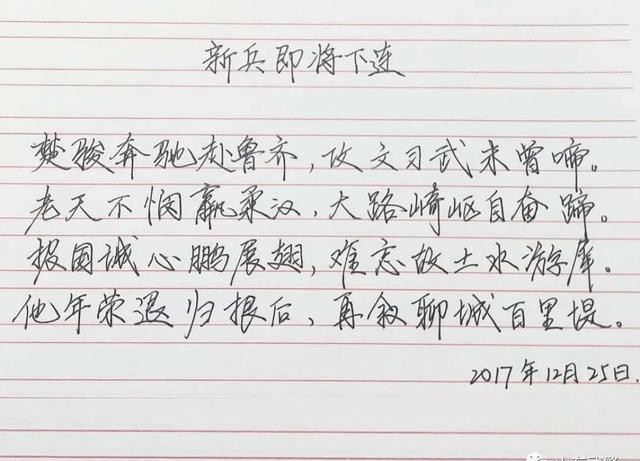 新兵即将下连
楚骏奔驰赴鲁齐，攻文习武未曾啼。
老天不悯羸柔汉，大路崎岖自奋蹄。
报国诚心鹏展翅，难忘故土水游库。
他年荣退归根后，再叙聊城百里堤。
2017年12月25日.